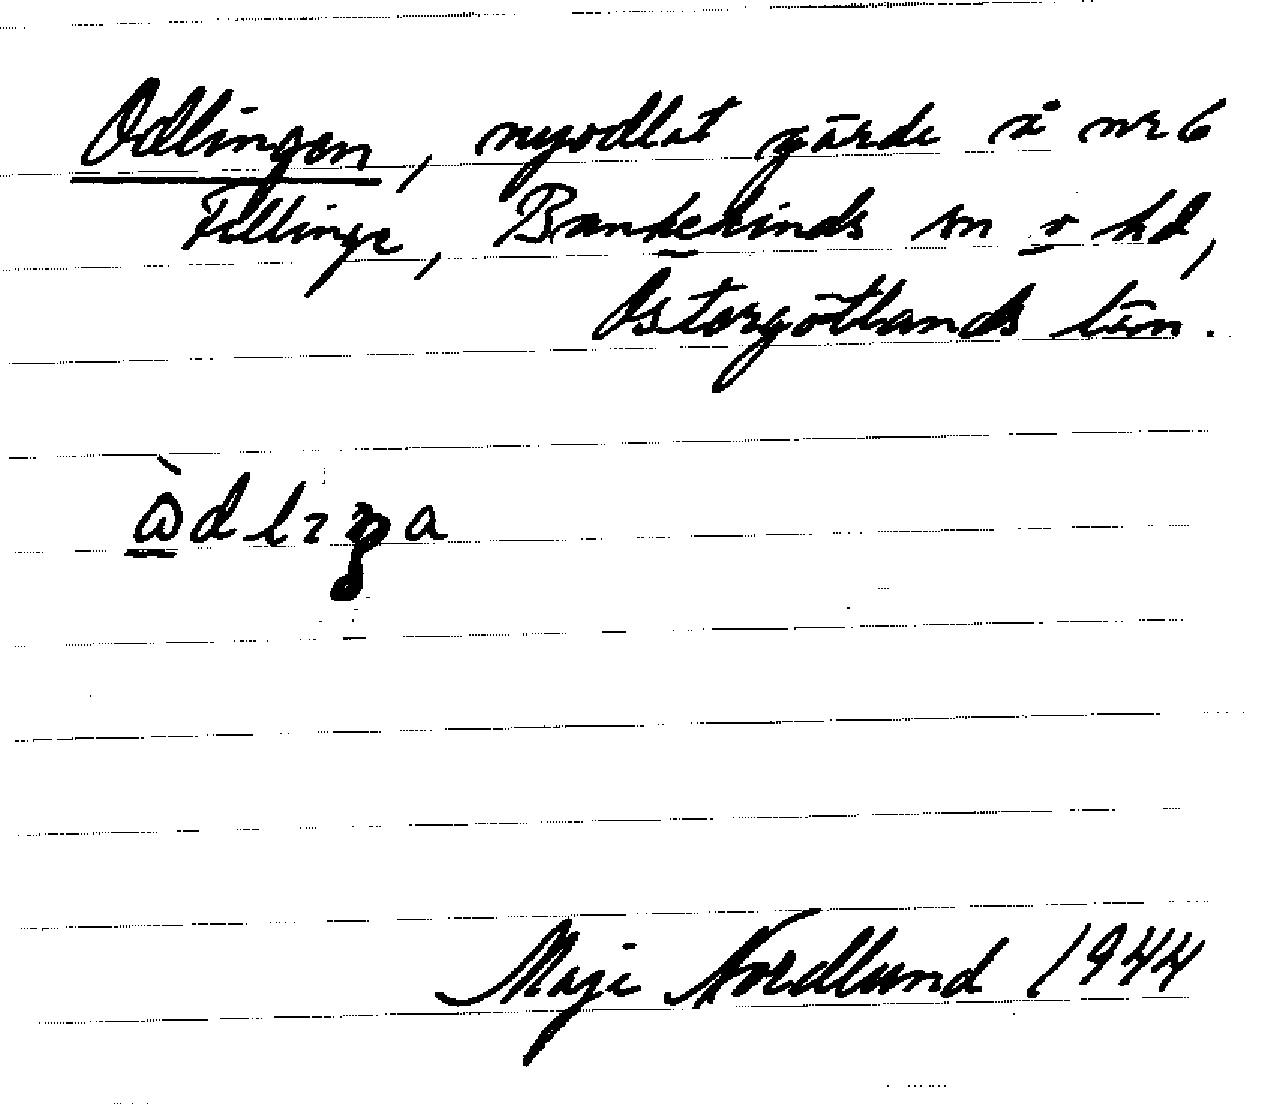 Odlingen, nyodlat gärde i nr 6
Fillinge, Bankekinds sn o hd,
Östergötlands län.
Maji Nordlund 1944